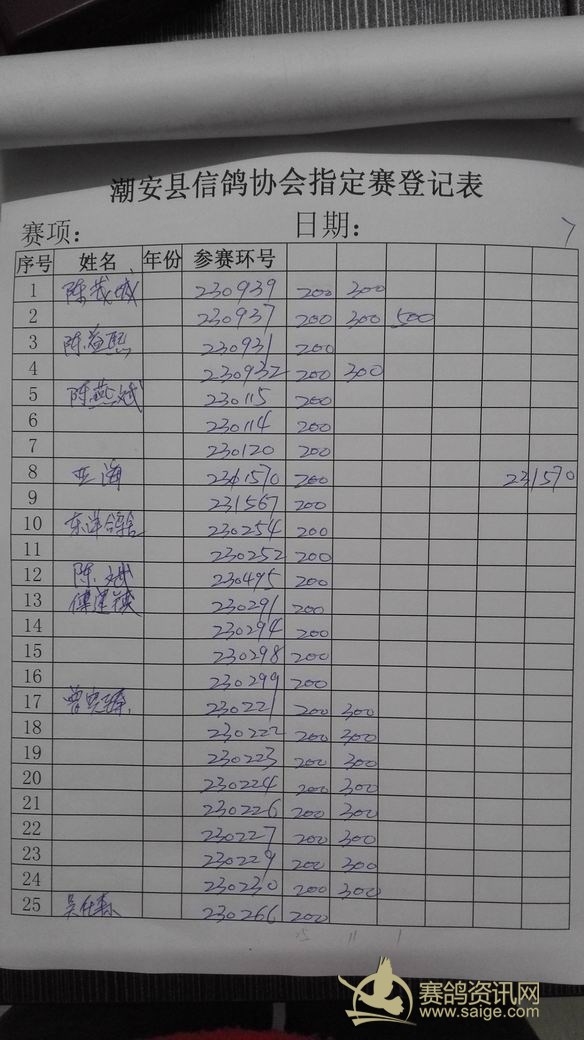 潮安县信鸽协会指定赛登记表
赛项: 日期: 7
序号 姓名 年份 参赛环号
1 陈茂城 230939 200 300
2 230937 200 300 500
3 陈益熙 230931 200
4 230932 200 300
5 陈燕斌 230115 200
6 230114 200
7 230120 200
8 亚海 231570 200 231570
9 231567 200
10 东洋鸽舍 230254 200
11 230252 200
12 陈斌 230495 200
13 230291 200
14 230294 200
15 230298 200
16 230299 200
17 230221 200 300
18 230222 200 300
19 230223 200 300
20 230224 200 300
21 230226 200 300
22 230227 200 300
23 230229 200 300
24 230230 200 300
25 230266 200
11 1
赛鸽资讯网
www.saige.com